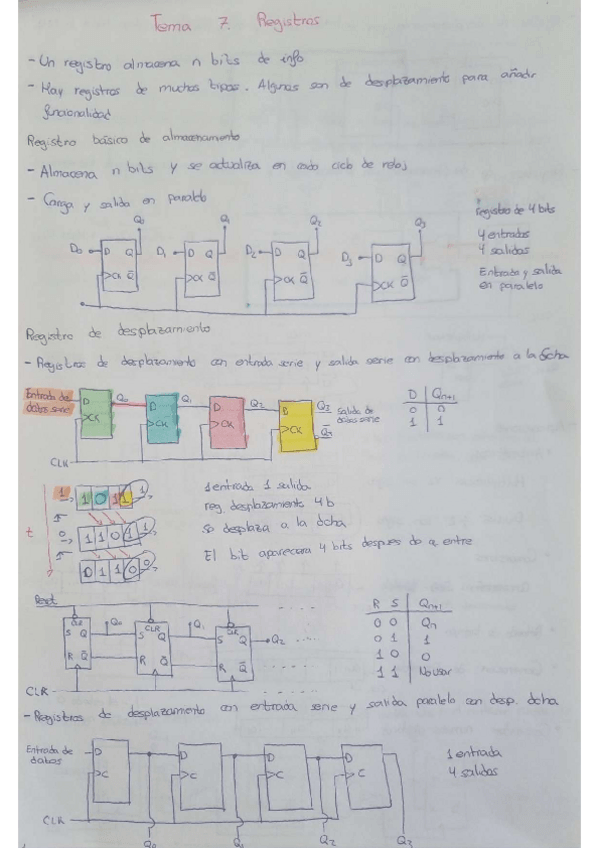 Tema 7. Registros
- Un registro almacena n bits de info
- Hay registros de muchos tipos. Algunos son de desplazamiento para añadir
funcionalidad
Registro básico de almacenamiento
- Almacena n bits y se actualiza en cada ciclo de reloj
- Carga y salida en paralelo
Q0 Q1 Q2 Q3
D0 D Q D1 D Q D2 D Q D3 D Q
CK Q̅ CK Q̅ CK Q̅ CK Q̅
Registro de 4 bits
4 entradas
4 salidas
Entrada y salida
en paralelo
Registro de desplazamiento
- Registros de desplazamiento con entrada serie y salida serie con desplazamiento a la dcha
Entrada de
datos serie
D Q0 D Q1 D Q2 D Q3
CK CK CK CK Q̅3
Salida de
datos serie
CLK
D Qn+1
0 0
1 1
1 1 0 1 1 1
0 1 1 0 1 1
0 1 1 0 0
t
1 entrada 1 salida
reg. desplazamiento 4 b
se desplaza a la dcha
El bit aparecera 4 bits despues de q entre
Reset
CLR CLR CLR
S Q Q0 S Q Q1 S Q Q2
R Q̅ R Q̅ R Q̅
CLK
R S Qn+1
0 0 Qn
0 1 1
1 0 0
1 1 No usar
- Registros de desplazamiento con entrada serie y salida paralelo con desp. dcha
Entrada de
datos
D D D D
C C C C
CLK
Q0 Q1 Q2 Q3
1 entrada
4 salidas